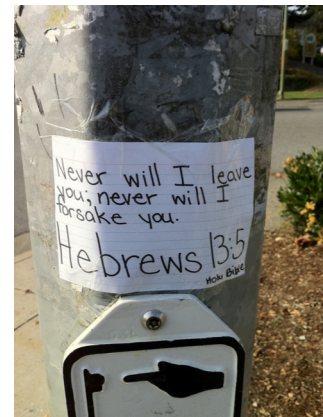 Never will I leave
you; never will I
forsake you.
Hebrews 13:5
Holy Bible